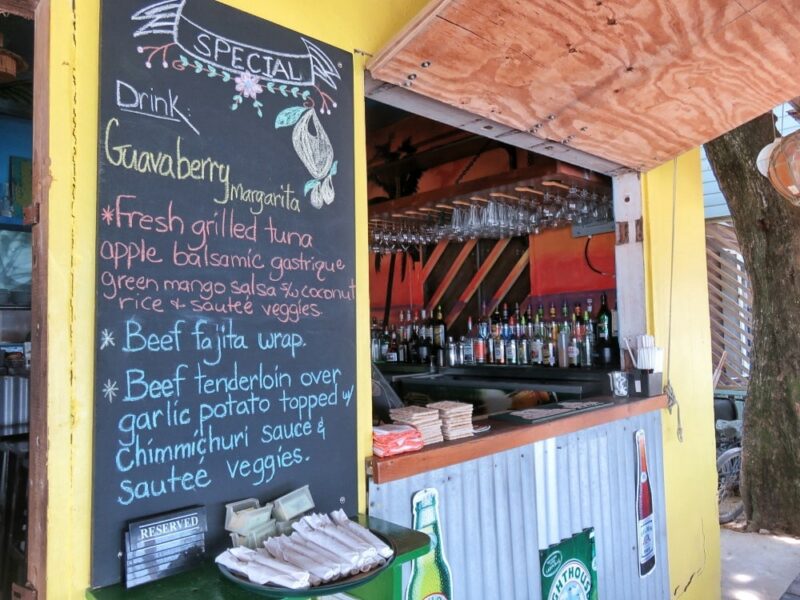 SPECIAL
Drink:
Guavaberry
margarita
*Fresh grilled tuna
apple balsamic gastrique
green mango salsa s/w coconut
rice & sauteé veggies.
* Beef fajita wrap.
* Beef tenderloin over
garlic potato topped w/
Chimmichuri sauce &
sauteé veggies.
RESERVED